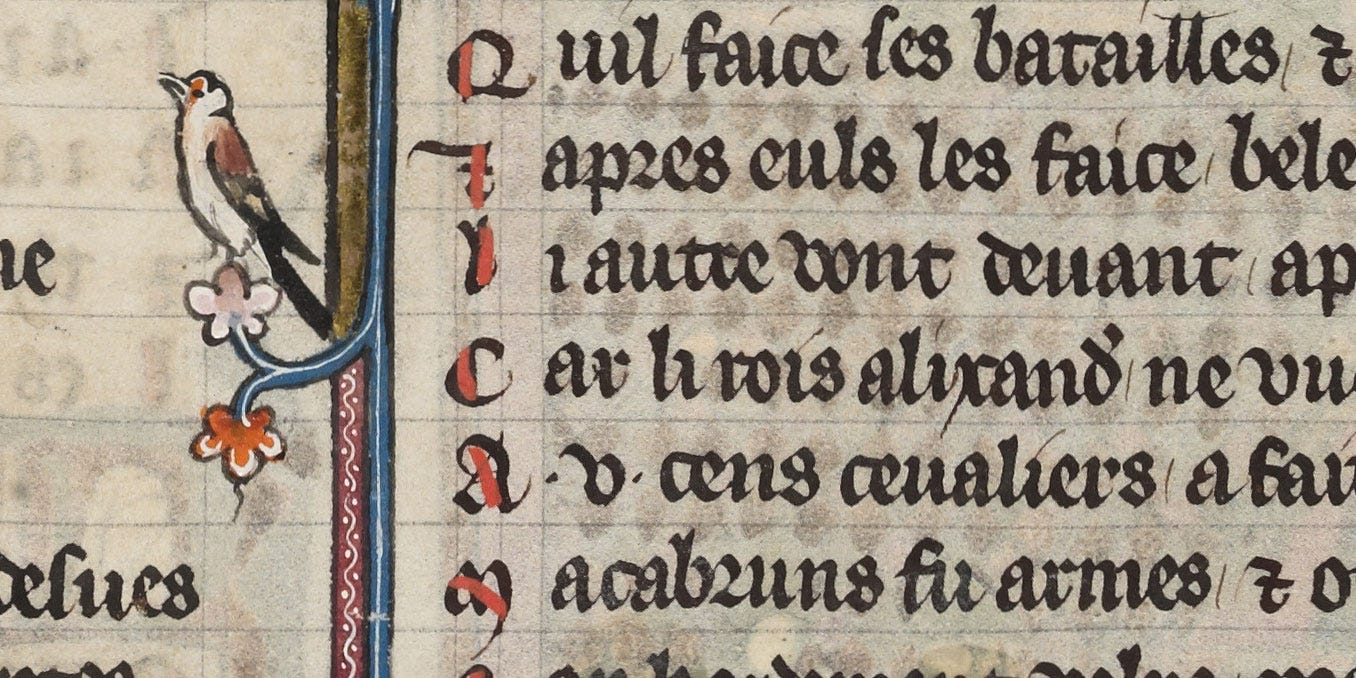 ue
desues
Quil faice ses batailles /⁊
⁊ apres euls les faice / bele
li autre vont deuant / ap
Car li rois alixand' ne vu
A ·v· cens ceualiers / a fait
Macabruns fu armes / ⁊ o